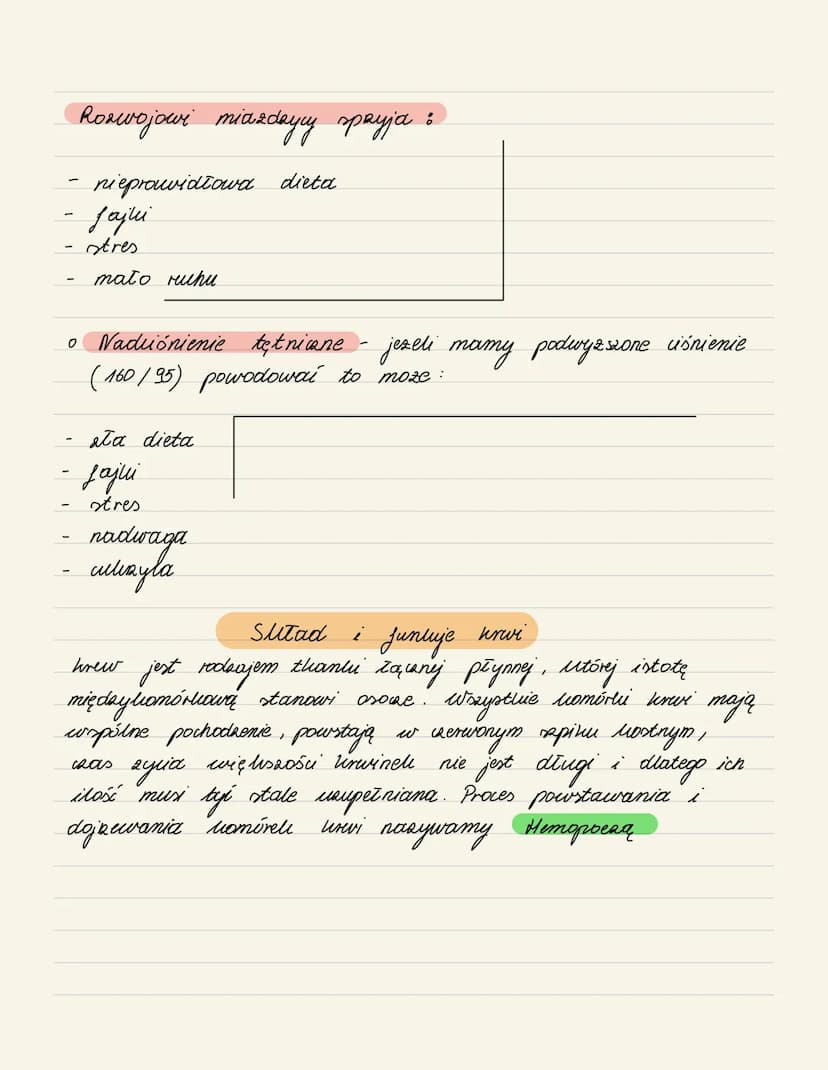 Rozwojowi miażdżycy sprzyja :
- nieprawidłowa dieta
- fajki
- stres
- mało ruchu
o Nadciśnienie tętnicze - jeżeli mamy podwyższone ciśnienie
(160/95) powodować to może :
- zła dieta
- fajki
- stres
- nadwaga
- cukrzyca
Skład i funkcje krwi
krew jest rodzajem tkanki łącznej płynnej, której istotę
międzykomórkową stanowi osocze. Wszystkie komórki krwi mają
wspólne pochodzenie, powstają w czerwonym szpiku kostnym,
czas życia większości krwinek nie jest długi i dlatego ich
ilość musi być stale uzupełniana. Proces powstawania i
dojrzewania komórek krwi nazywamy Hemopoezą